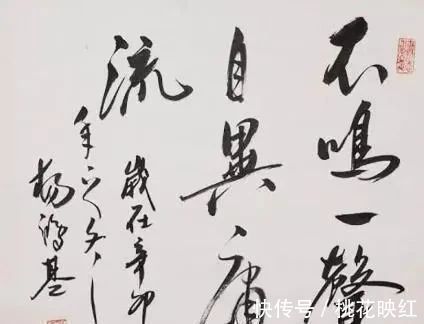 不鳴一聲
自異庸
流
歲在辛卯
年之冬
杨洪基
快传号/桃花映红